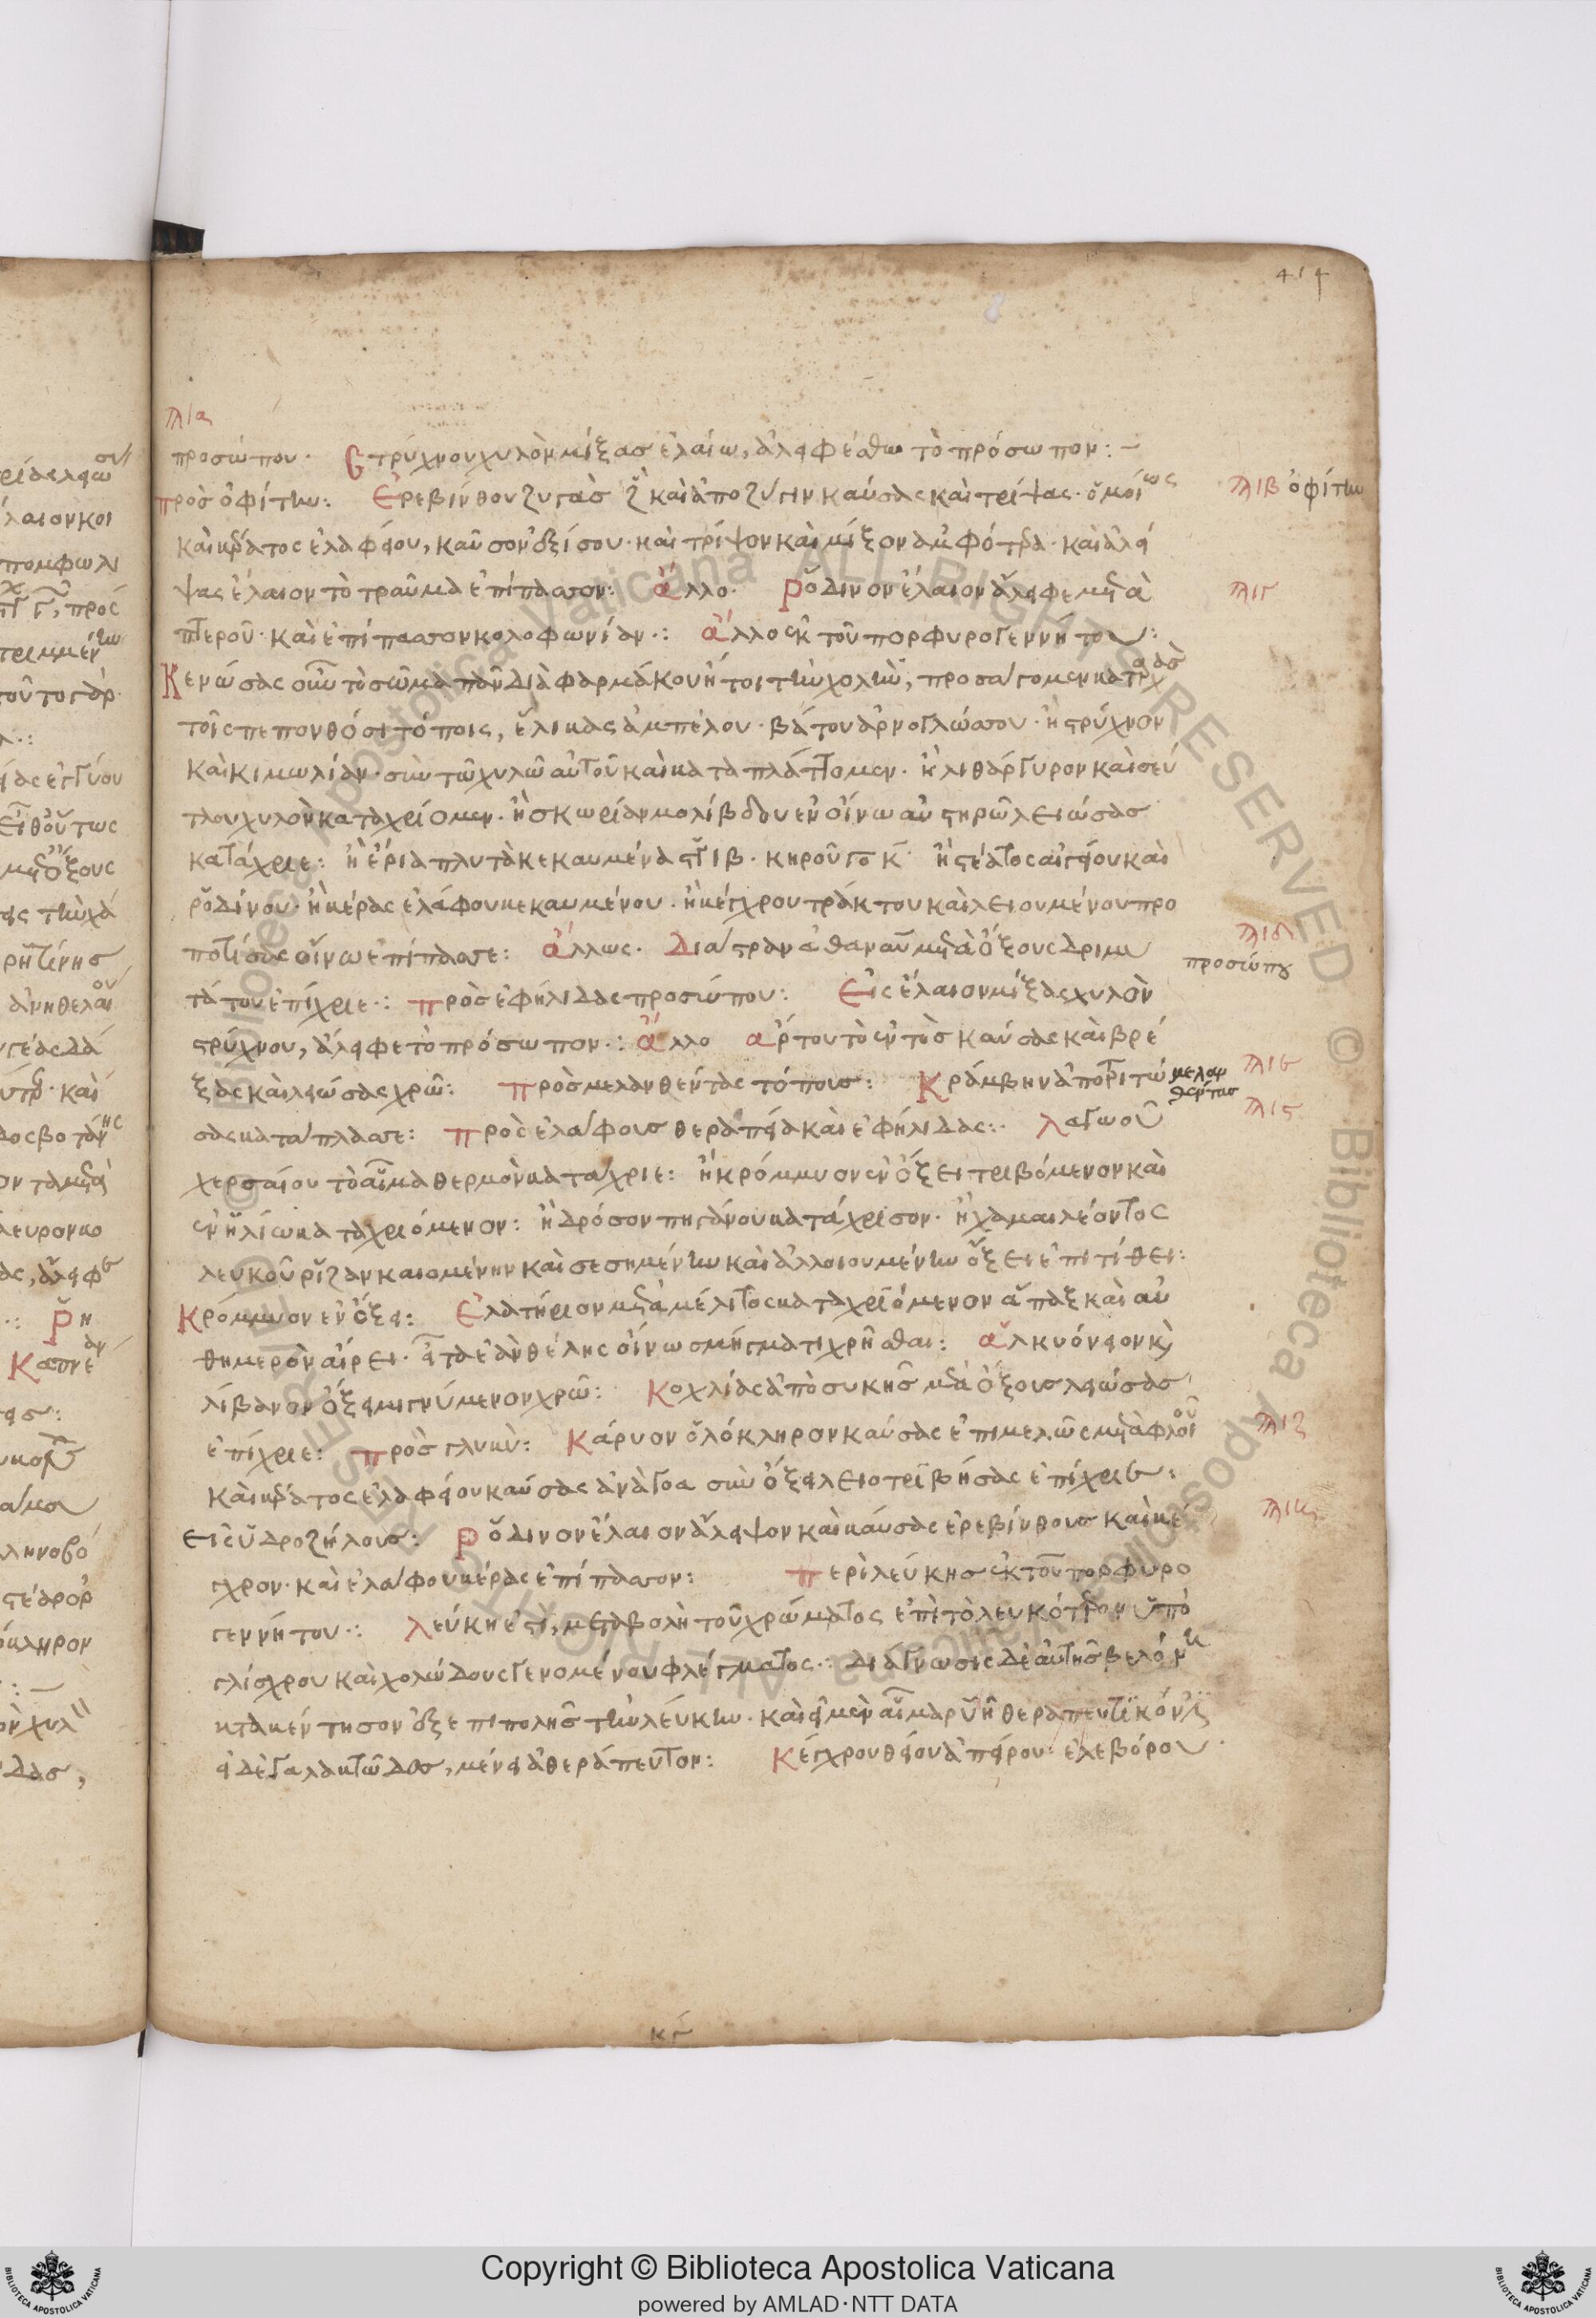 414
πλια
προσώπου· Στρύχνου χυλὸν μίξας ἐλαίω, ἀλειφέσθω τὸ πρόσωπον:–
πρὸς ὀφίτην: Ἐρεβίνθου ζυγὰσ ζ καὶ ἀποζύγην καύσας καὶ τρίψας· ὁμοίως
πλιβ ὀφίτην
καὶ κέρατος ἐλαφείου, καῦσον ὀξίσου· καὶ τρίψον καὶ μίξον ἀμφότερα· καὶ ἀλεί
ψας ἔλαιον τὸ τραῦμα ἐπίπασσον: ἄλλο· Ῥόδινον ἔλαιον ἄλειφε μετὰ
πλιγ
πτεροῦ· καὶ ἐπίπασσον κολοφωνίαν·: ἄλλο ἐκ τοῦ πορφυρογεννήτου:
Κενώσας οὖν τὸ σῶμα πᾶν διὰ φαρμάκου ἤτοι τὴν χολὴν, προσάγομεν κατ
τοῖς πεπονθόσι τόποις, ἕλικας ἀμπέλου· βάτου ἀρνογλώσσου· ἢ στρύχνον
καὶ κιμωλίαν· σὺν τῶ χυλῶ αὐτοῦ καὶ καταπλάττομεν· ἢ λιθάργυρον καὶ σεύ
τλου χυλὸν καταχρίομεν· ἢ σκωρίαν μολίβδου ἐν οἴνω αὐστηρῶ λειώσασ
κατάχριε: ἢ ἔρια πλυτὰ κεκαυμένα ιβ· κηροῦ κ ἢ στέατος αἰγείου καὶ
ῥοδίνου· ἢ κέρας ἐλάφου κεκαυμένου· ἢ κέγχρου τράκτου καὶ λειουμένου προ
ποτίσας οἴνω ἐπίπασσε: ἄλλως· Διάστραν μετὰ ὄξους δριμυ
πλιδ
προσώπου
τάτου ἐπίχριε·: πρὸς ἐφήλιδας προσώπου: Εἰς ἔλαιον μίξας χυλὸν
στρύχνου, ἄλειφε τὸ πρόσωπον·: ἄλλο ἄρτου τὸ ἐντὸσ καύσας καὶ βρέ
ξας καὶ λειώσας χρῶ: πρὸσ μελανθέντας τόπουσ: Κράμβην ἀποτριτώ
πλιε
σας κατάπλασσε: πρὸς ἐλάφουσ θεραπεία καὶ ἐφήλιδας:· Λαγωοῦ
πλις
χερσαίου τὸ αἷμα θερμὸν κατάχριε: ἢ κρόμμυον ἐν ὄξει τριβόμενον καὶ
ἐν ἡλίω καταχριόμενον: ἢ δρόσον πηγάνου κατάχρισον· ἢ χαμαιλέοντος
λευκοῦ ῥίζαν καιομένην καὶ σεσημένην καὶ ἀλλοιουμένην ὄξει ἐπιτίθει:
Κρόμμυον ἐν ὄξει: Ἐλατήριον μετὰ μέλιτος καταχριόμενον ἅπαξ καὶ αὐ
θημερὸν αἴρει· εἶτα ἐὰν θέλης οἴνω σμήγματι χρῆσθαι: ἀλκυόνειον καὶ
λίβανον ὄξει μιγνύμενον χρῶ: Κοχλίας ἀπὸ συκῆσ μετὰ ὄξουσ λειώσασ
ἐπίχριε: πρὸσ γλυκὺ: Κάρυον ὁλόκληρον καύσας ἐπιμελῶς μετὰ φλοιοῦ
πλιζ
καὶ κέρατος ἐλαφείου καύσας ἀνὰ σὺν ὄξει λειοτριβήσας ἐπίχριε:
εἰς ὑδροζήλουσ: Ῥόδινον ἔλαιον ἄλειψον καὶ καύσας ἐρεβίνθουσ καὶ κέ
πλιη
γχρον· καὶ ἐλάφου κέρας ἐπίπασσον: περὶ λεύκησ ἐκ τοῦ πορφυρο
γεννήτου·: Λεύκη ἐστὶ, μεταβολὴ τοῦ χρώματος ἐπὶ τὸ λευκότερον ὑπὸ
γλίσχρου καὶ χολώδους γενομένου φλέγματος·: διάγνωσις δὲ αὐτῆσ βελόνη
κτακέντησον ἐξεπιπολῆσ τὴν λεύκην· καὶ εἰ μὲν αἷμα ῥυῆ θεραπευτικόν
εἰ δὲ γαλακτῶδεσ, μένει ἀθεράπευτον: Κέγχρου θείου ἀπείρου· ἐλεβόρου
κγ
Copyright © Biblioteca Apostolica Vaticana
powered by AMLAD·NTT DATA